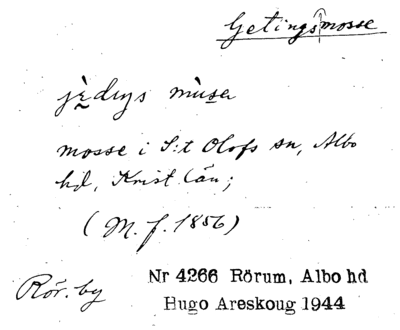 Getingsmosse
mosse i S:t Olofs sn, Albo
hd, Krist län;
(M. f. 1856)
Nr 4266 Rörum, Albo hd
Rör. by
Hugo Areskoug 1944